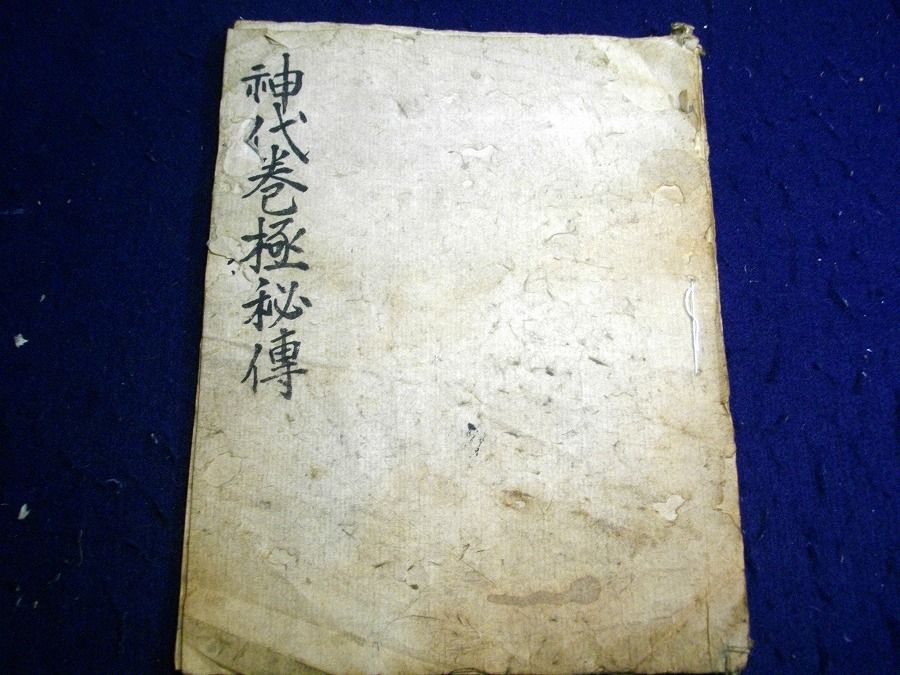 神代巻極秘傳